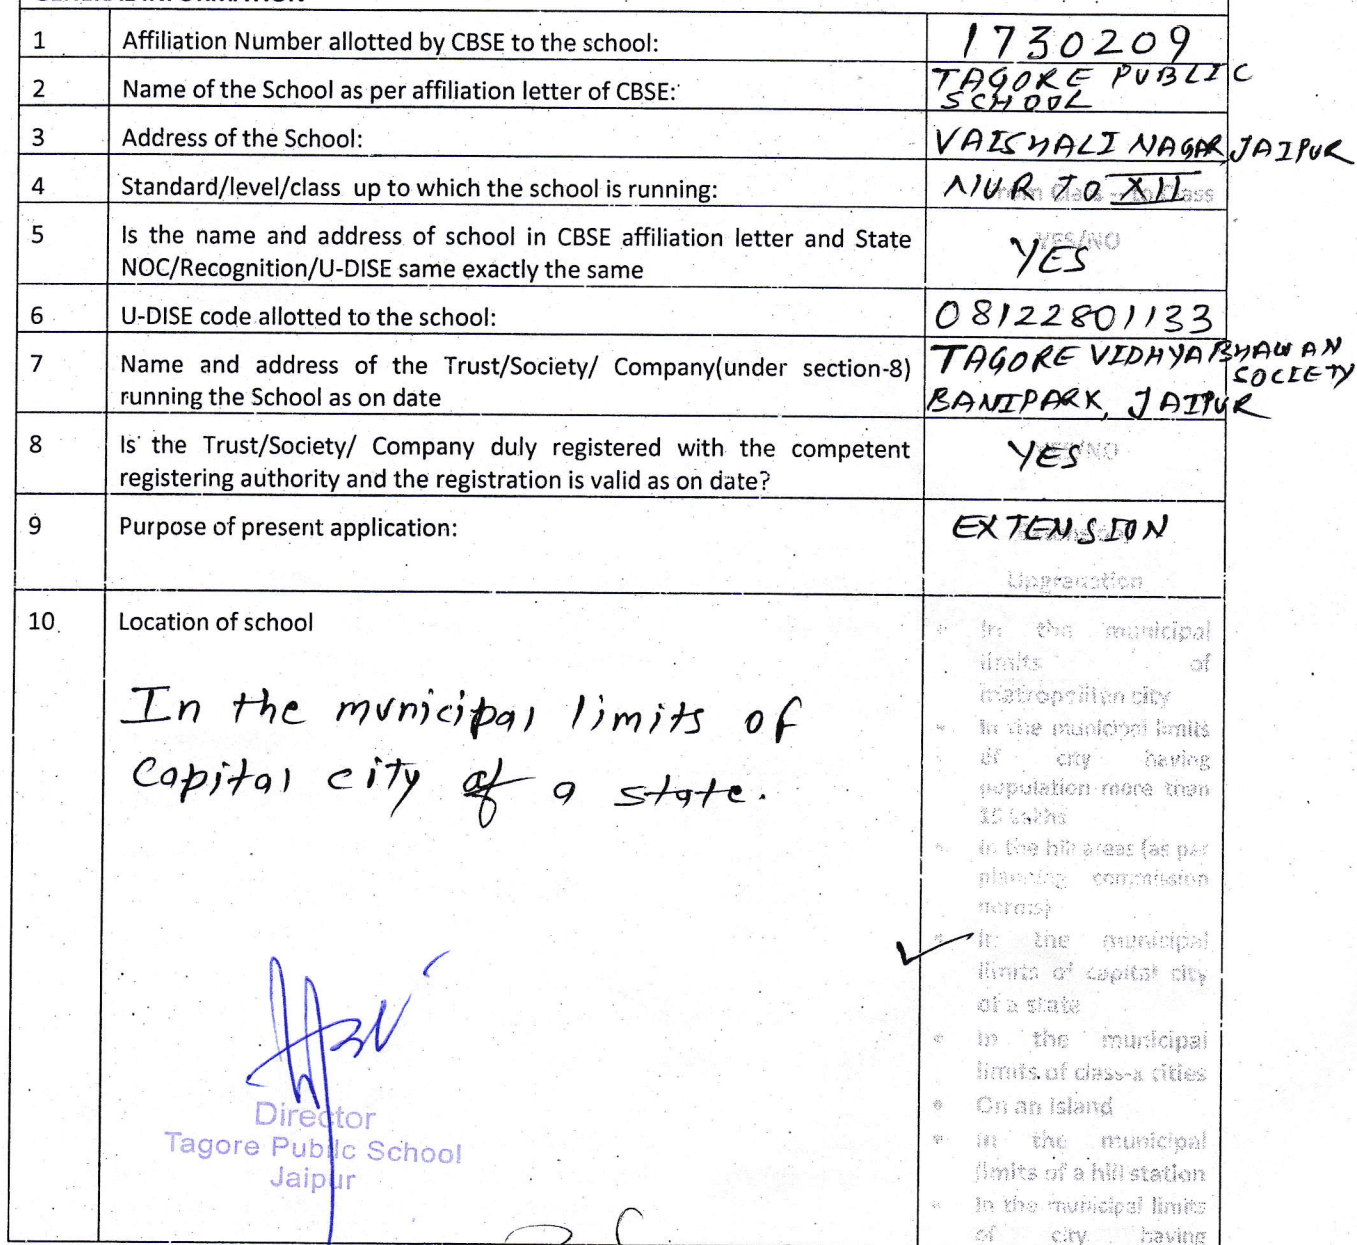 1 Affiliation Number allotted by CBSE to the school: 1730209
2 Name of the School as per affiliation letter of CBSE: TAGORE PUBLIC
SCHOOL
3 Address of the School: VAISHALI NAGAR, JAIPUR
4 Standard/level/class up to which the school is running: NUR TO XII
5 Is the name and address of school in CBSE affiliation letter and State
NOC/Recognition/U-DISE same exactly the same
YES/NO
YES
6 U-DISE code allotted to the school: 08122801133
7 Name and address of the Trust/Society/ Company(under section-8)
running the School as on date
TAGORE VIDHYA BHAWAN
SOCIETY
BANIPARK, JAIPUR
8 Is the Trust/Society/ Company duly registered with the competent
registering authority and the registration is valid as on date?
YES
9 Purpose of present application: EXTENSION
Upgradation
10 Location of school
In the municipal limits of
Capital city of a state.
• In the municipal
limits of
metropolitan city
• In the municipal limits
of city having
population more than
15 Lakhs
• In the hill areas (as per
planning commission
norms)
• In the municipal
limits of capital city
of a state
• In the municipal
limits of class-x cities
• On an Island
• In the municipal
limits of a hill station
• In the municipal limits
of city having
Director
Tagore Public School
Jaipur